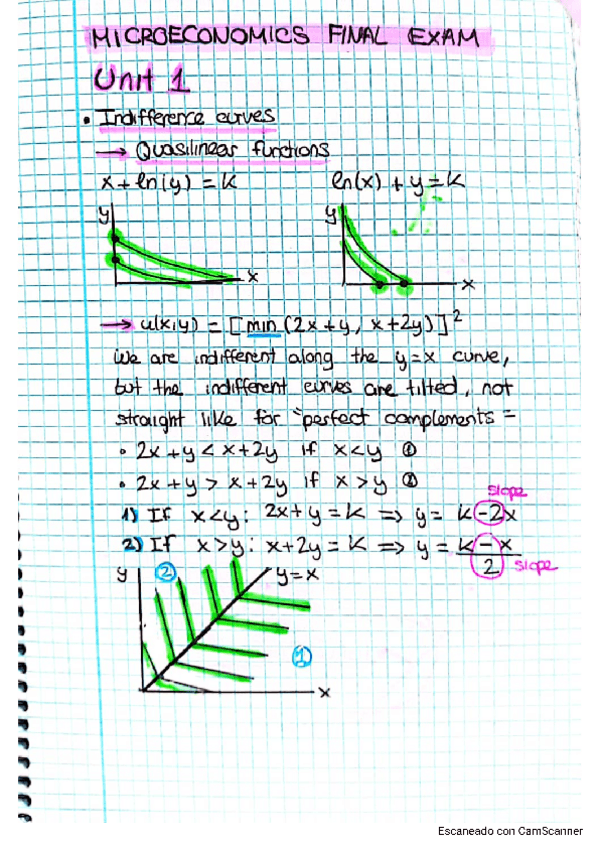 MICROECONOMICS FINAL EXAM
Unit 1
• Indifference curves
→ Quasilinear functions
x + ln(y) = k
ln(x) + y = k
y
x
y
x
→ u(x,y) = [min (2x+y, x+2y)]²
We are indifferent along the y=x curve,
but the indifferent curves are tilted, not
straight like for "perfect complements =
• 2x + y < x + 2y if x < y ①
• 2x + y > x + 2y if x > y ②
slope
1) If x<y: 2x + y = k ⇒ y = k - 2x
2) If x>y: x + 2y = k ⇒ y = k - x / 2 slope
y
②
y=x
①
x
Escaneado con CamScanner